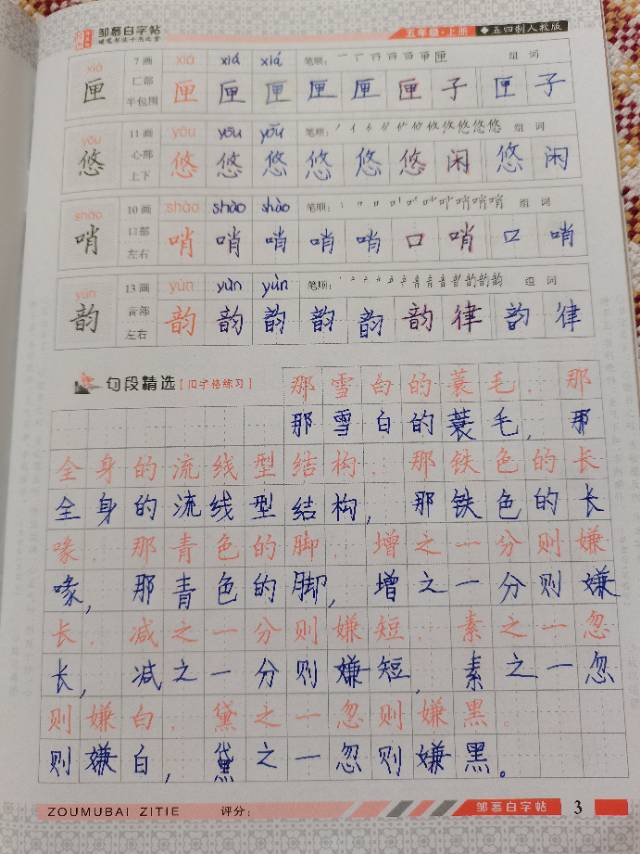 邹慕白字帖 五年级·上册 ◆五四制人教版
xiá 7画 xiá xiá xiá 笔顺: 组词
匣 匚部 半包围 匣 匣 匣 匣 匣 匣 子 匣 子
yōu 11画 yōu yōu yōu 笔顺: 组词
悠 心部 上下 悠 悠 悠 悠 悠 悠 闲 悠 闲
shào 10画 shào shào shào 笔顺: 组词
哨 口部 左右 哨 哨 哨 哨 哨 口 哨 口 哨
yùn 13画 yùn yùn yùn 笔顺: 组词
韵 音部 左右 韵 韵 韵 韵 韵 韵 律 韵 律
句段精选[田字格练习] 那雪白的蓑毛,那
那雪白的蓑毛,那
全身的流线型结构,那铁色的长
全身的流线型结构,那铁色的长
喙,那青色的脚,增之一分则嫌
喙,那青色的脚,增之一分则嫌
长,减之一分则嫌短,素之一忽
长,减之一分则嫌短,素之一忽
则嫌白,黛之一忽则嫌黑。
则嫌白,黛之一忽则嫌黑。
ZOUMUBAI ZITIE 评分: 邹慕白字帖 3